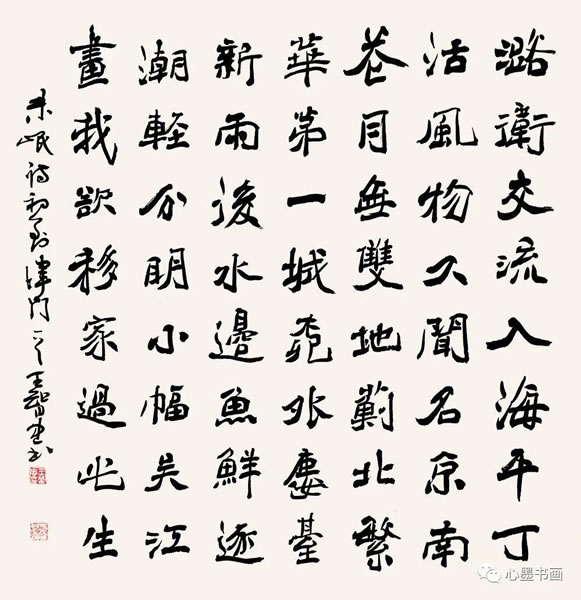 潞衛交流入海平丁
沽風物久聞名京南
花月無雙地薊北繁
華第一城苑外樓臺
新雨後水邊魚鮮逐
潮輕分明小幅吳江
畫我欲移家過此生
朱岷诗初到津门一首王智書
心墨书画